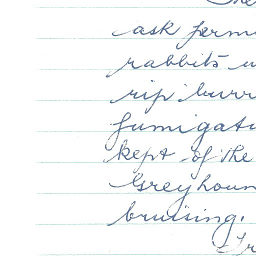 ask perm
rabbits
rip burr
fumigat
kept of the
Greyhoun
bruising.